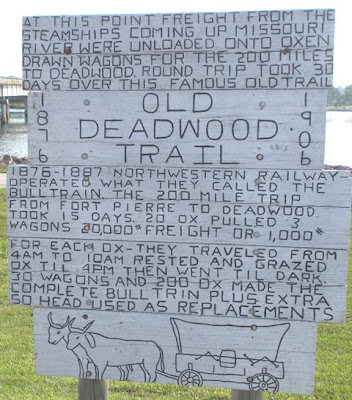 AT THIS POINT FREIGHT FROM THE
STEAMSHIPS COMING UP MISSOURI
RIVER WERE UNLOADED ONTO OXEN
DRAWN WAGONS FOR THE 200 MILES
TO DEADWOOD. ROUND TRIP TOOK 30
DAYS OVER THIS FAMOUS OLD TRAIL
1876
OLD
DEADWOOD
TRAIL
1906
1876-1887 NORTHWESTERN RAILWAY
OPERATED WHAT THEY CALLED THE
BULL TRAIN. THE 200 MILE TRIP
FROM FORT PIERRE TO DEADWOOD
TOOK 15 DAYS. 20 OX PULLED 3
WAGONS 20,000# FREIGHT OR 1,000#
FOR EACH OX-THEY TRAVELED FROM
4AM TO 10AM RESTED AND GRAZED
OX TIL 4PM THEN WENT TIL DARK
30 WAGONS AND 200 OX MADE THE
COMPLETE BULL TRIN PLUS EXTRA
50 HEAD USED AS REPLACEMENTS